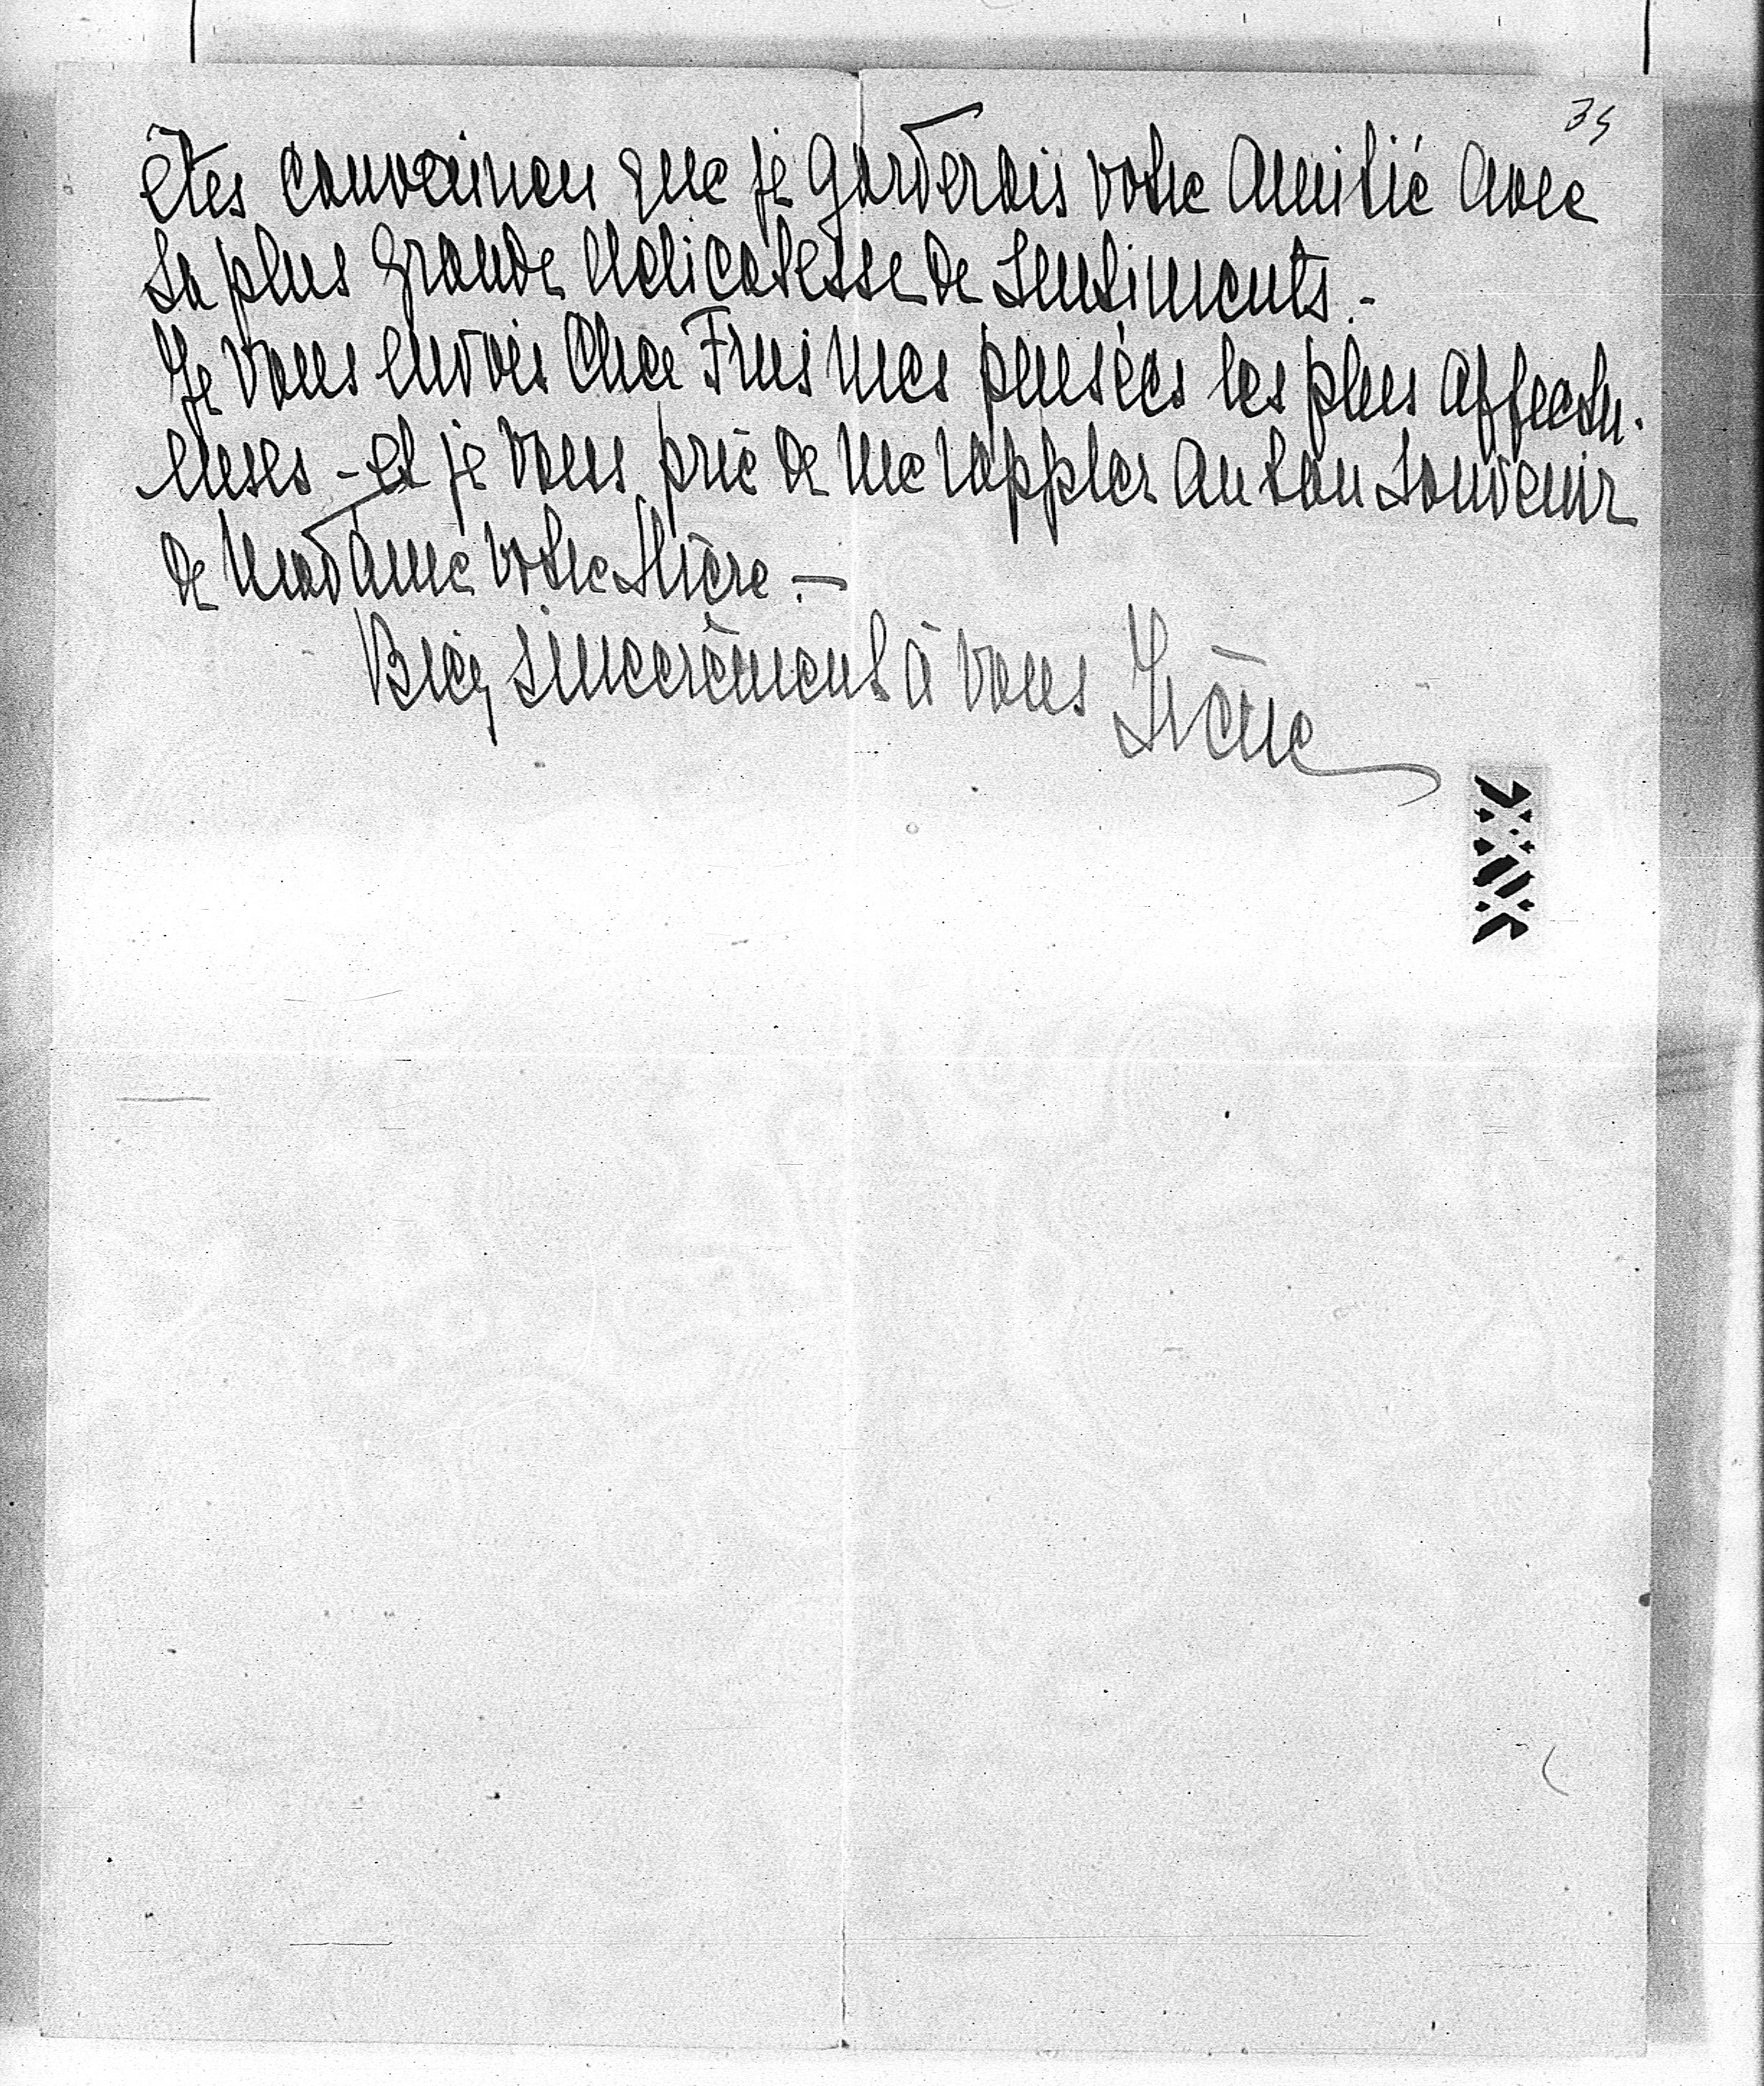 35
êtes convaincu que je garderais votre amitié avec
la plus grande délicatesse de sentiments. -
Je vous envois cher mes pensées les plus affectu-
euses - et je vous prie de me rappler au bon souvenir
de Madame votre Mère. -
Bien sincerèment à vous Irène